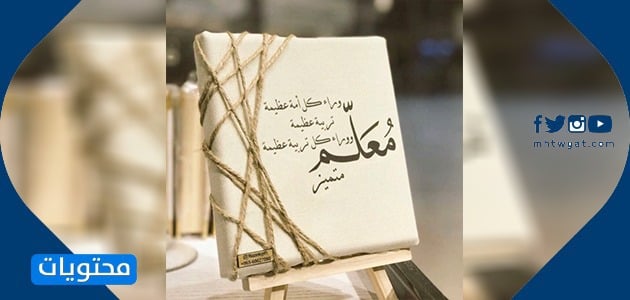 وراء كل أمة عظيمة
تربية عظيمة
ووراء كل تربية عظيمة
مُعَلِّم
متميز
mhtwyat.com
محتويات